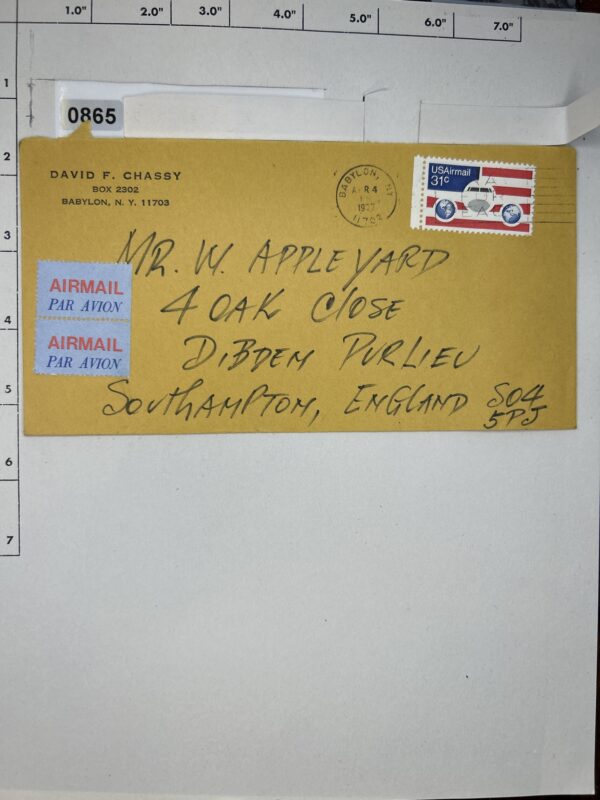 1.0" 2.0" 3.0" 4.0" 5.0" 6.0" 7.0"
1
2
3
4
5
6
7
0865
DAVID F. CHASSY
BOX 2302
BABYLON, N. Y. 11703
BABYLON, NY
APR 4
1977
11702
USAirmail
31c
MR. W. APPLEYARD
4 OAK CLOSE
DIBDEM PURLIEU
SOUTHAMPTON, ENGLAND SO4
5PJ
AIRMAIL
PAR AVION
AIRMAIL
PAR AVION